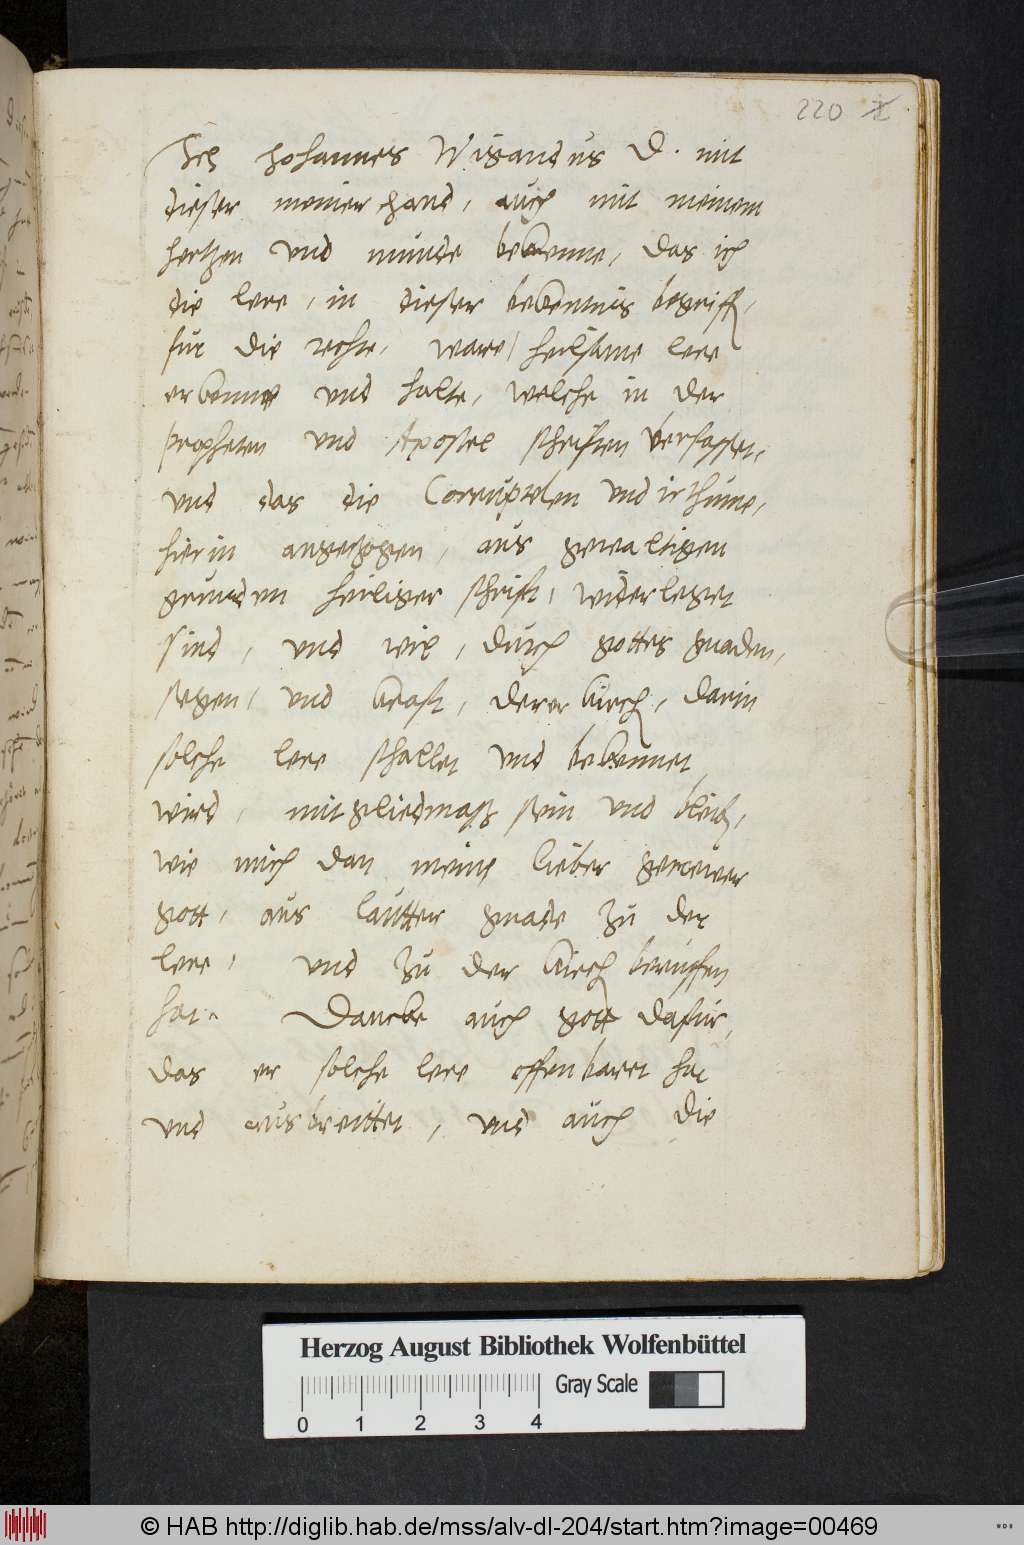 220
Ich Johannes Wigandus D. mit
dieser meiner hand, auch mit meinem
hertzen und munde bekenne, das ich
die lere, in dieser bekentnis begriff,
fur die rechte, ware, heilsame lere
erkenne und halte, welche in der
propheten und Apostel schrifften verfasset,
und das die Corruptelen und irthume,
hierin angezogen, aus gewaltigen
grunden heiliger schrift, widerleget
sind, und wil, durch gottes gnaden,
segen, und kraft, derer kirch, darin
solche lere schallet und bekennet
wird, mitgliedmaß sein und bleib,
wie mich dan meine lieber getrewer
gott, aus lautter gnade zu der
lere, und zu der kirch beruffen
hat. Dancke auch gott dafur,
das er solche lere offenbaret hat
und ausbreittet, und auch die
Herzog August Bibliothek Wolfenbüttel
0 1 2 3 4 Gray Scale
© HAB http://diglib.hab.de/mss/alv-dl-204/start.htm?image=00469